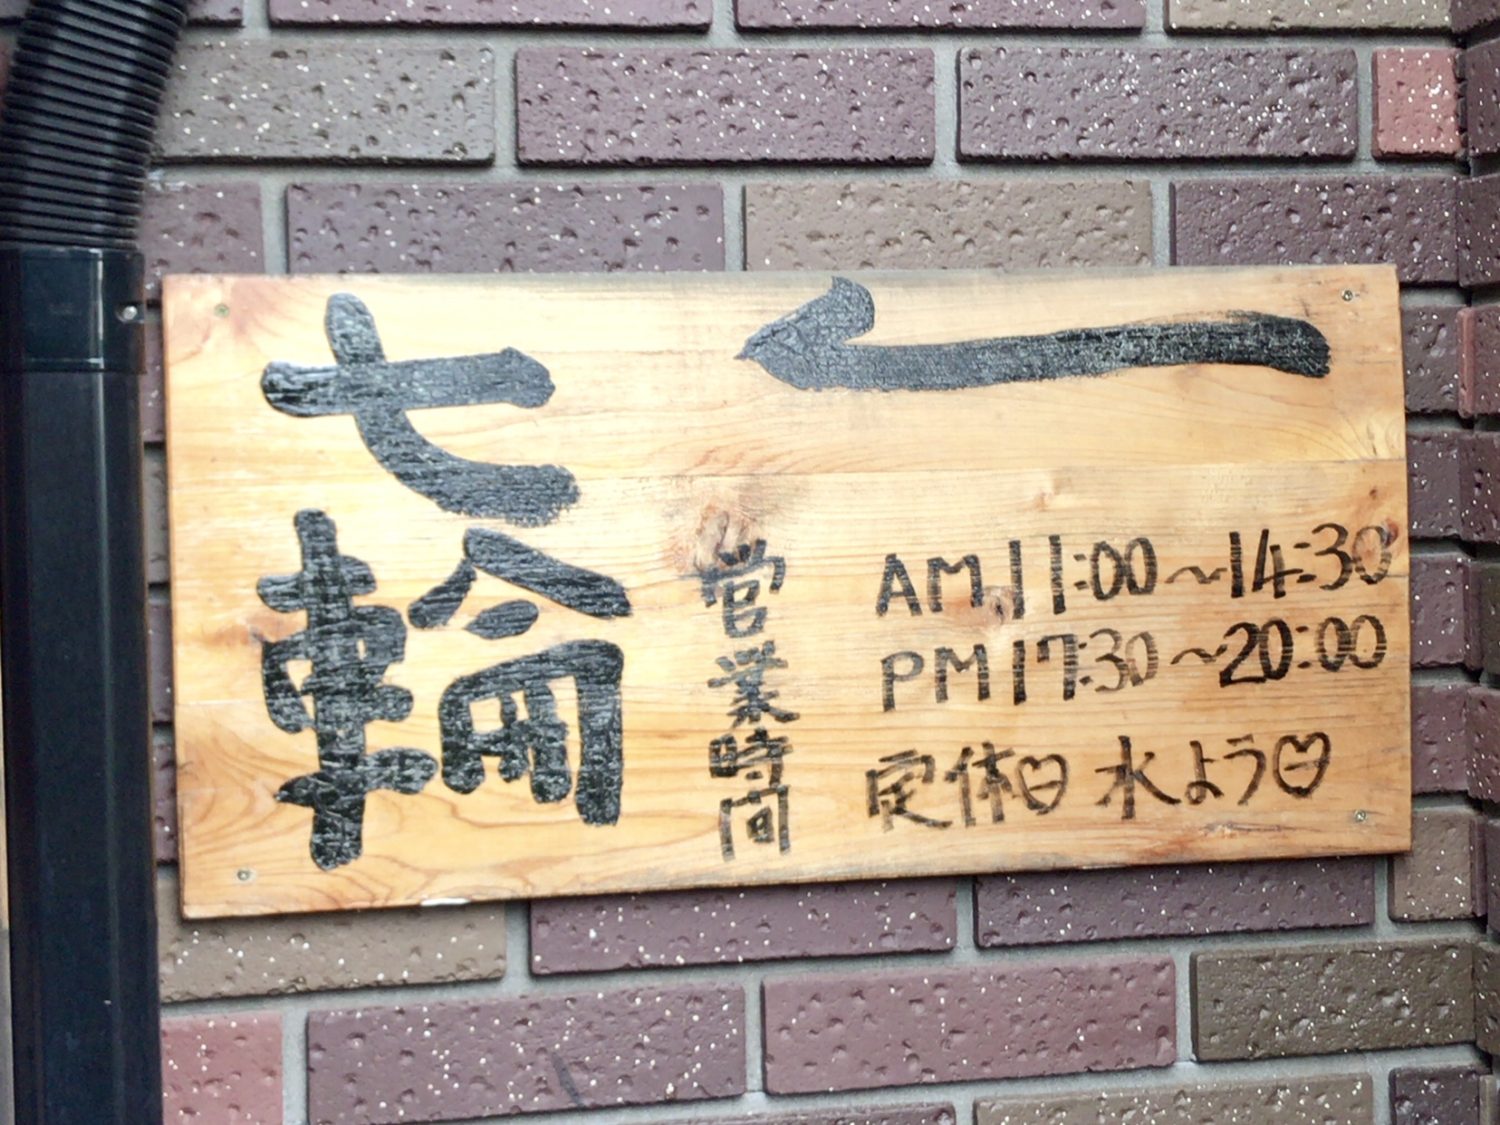 七輪
営業時間
AM 11:00〜14:30
PM 17:30〜20:00
定休日 水よう日